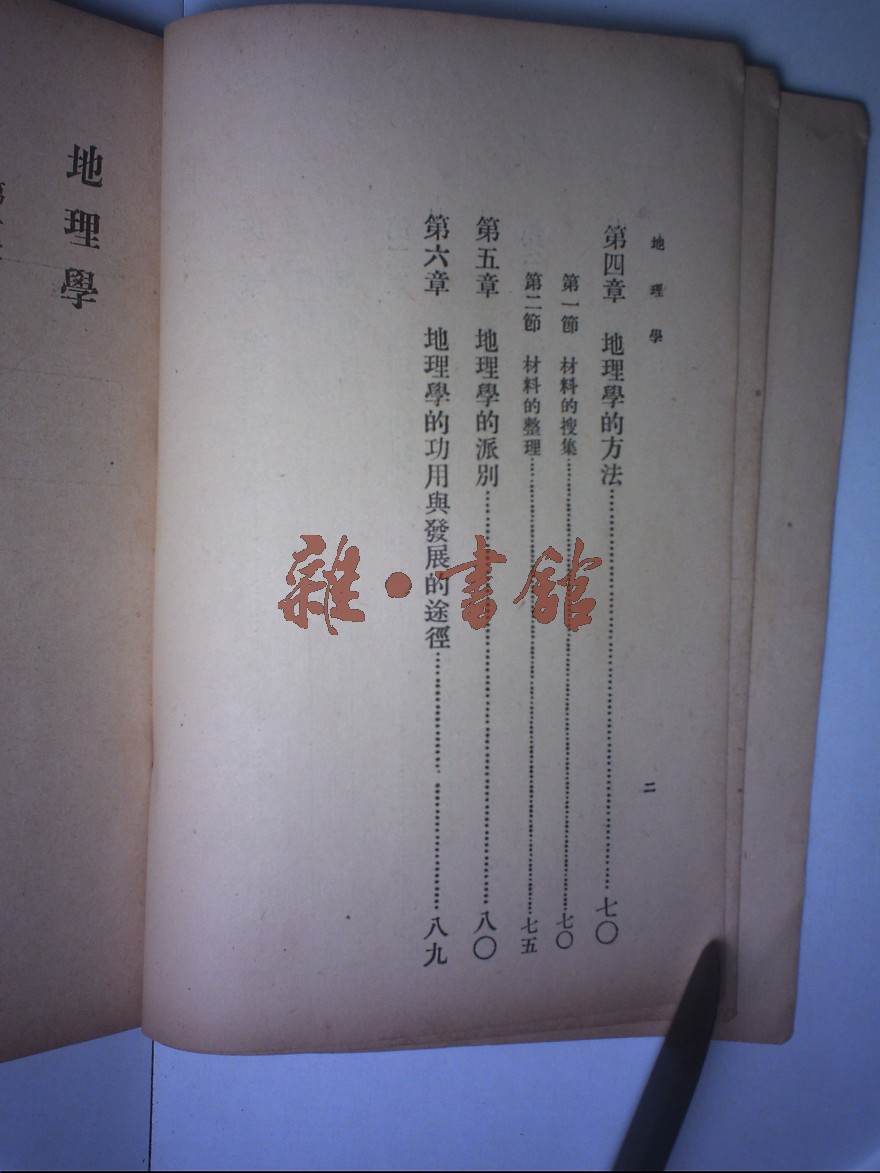 地理學
二
第四章 地理學的方法……七〇
第一節 材料的搜集……七〇
第二節 材料的整理……七五
第五章 地理學的派別……八〇
第六章 地理學的功用與發展的途徑……八九
雜·書館
地理學